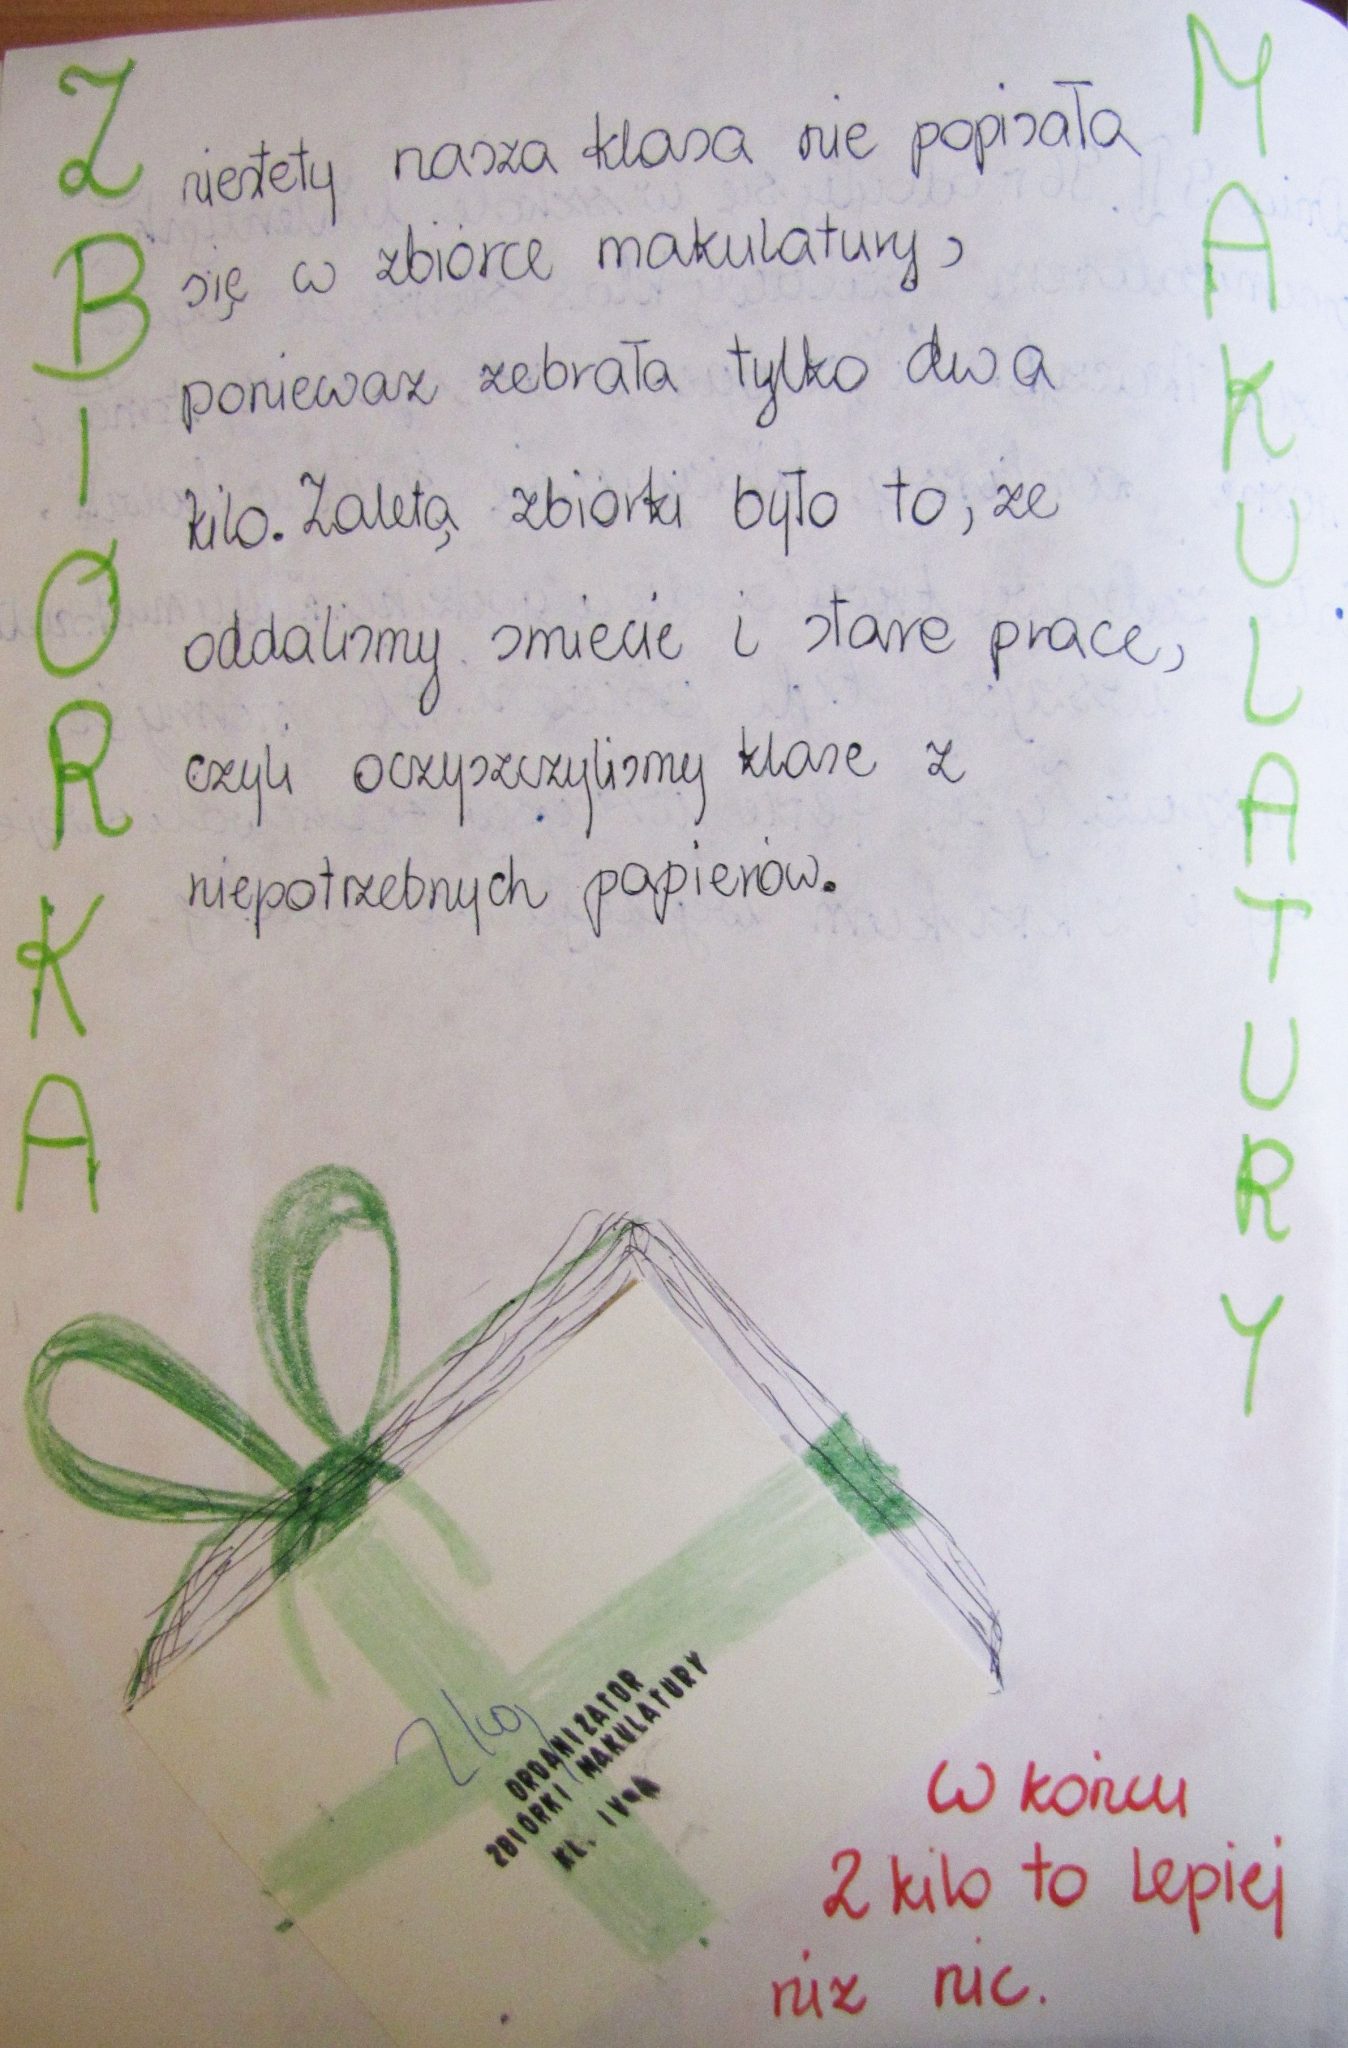 ZBIÓRKA
MAKULATURY
niestety nasza klasa nie popisała
się w zbiórce makulatury,
poniewaz zebrała tylko dwa
kilo. Zaletą zbiórki było to, ze
oddalismy smiecie i stare prace,
czyli oczyszczylismy klase z
niepotrzebnych papierów.
2 kg
ORGANIZATOR
ZBIÓRKI MAKULATURY
KL. IV"A
W końcu
2 kilo to lepiej
niz nic.